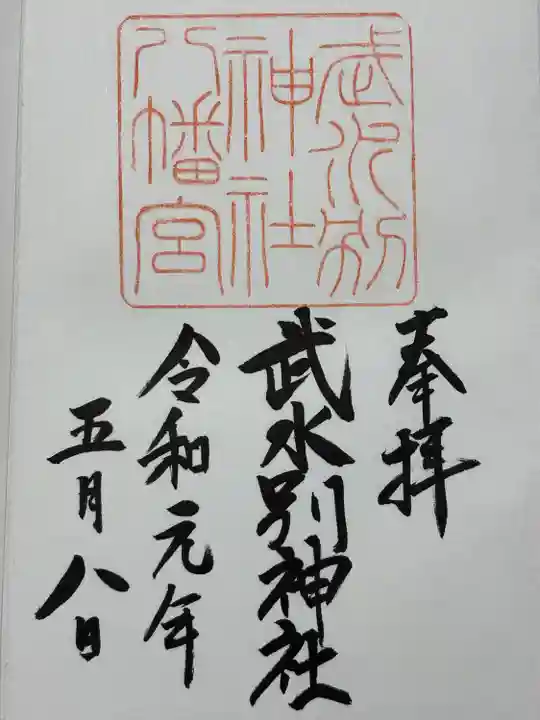 武水別
神社
八幡宮
奉拝
武水別神社
令和元年
五月八日